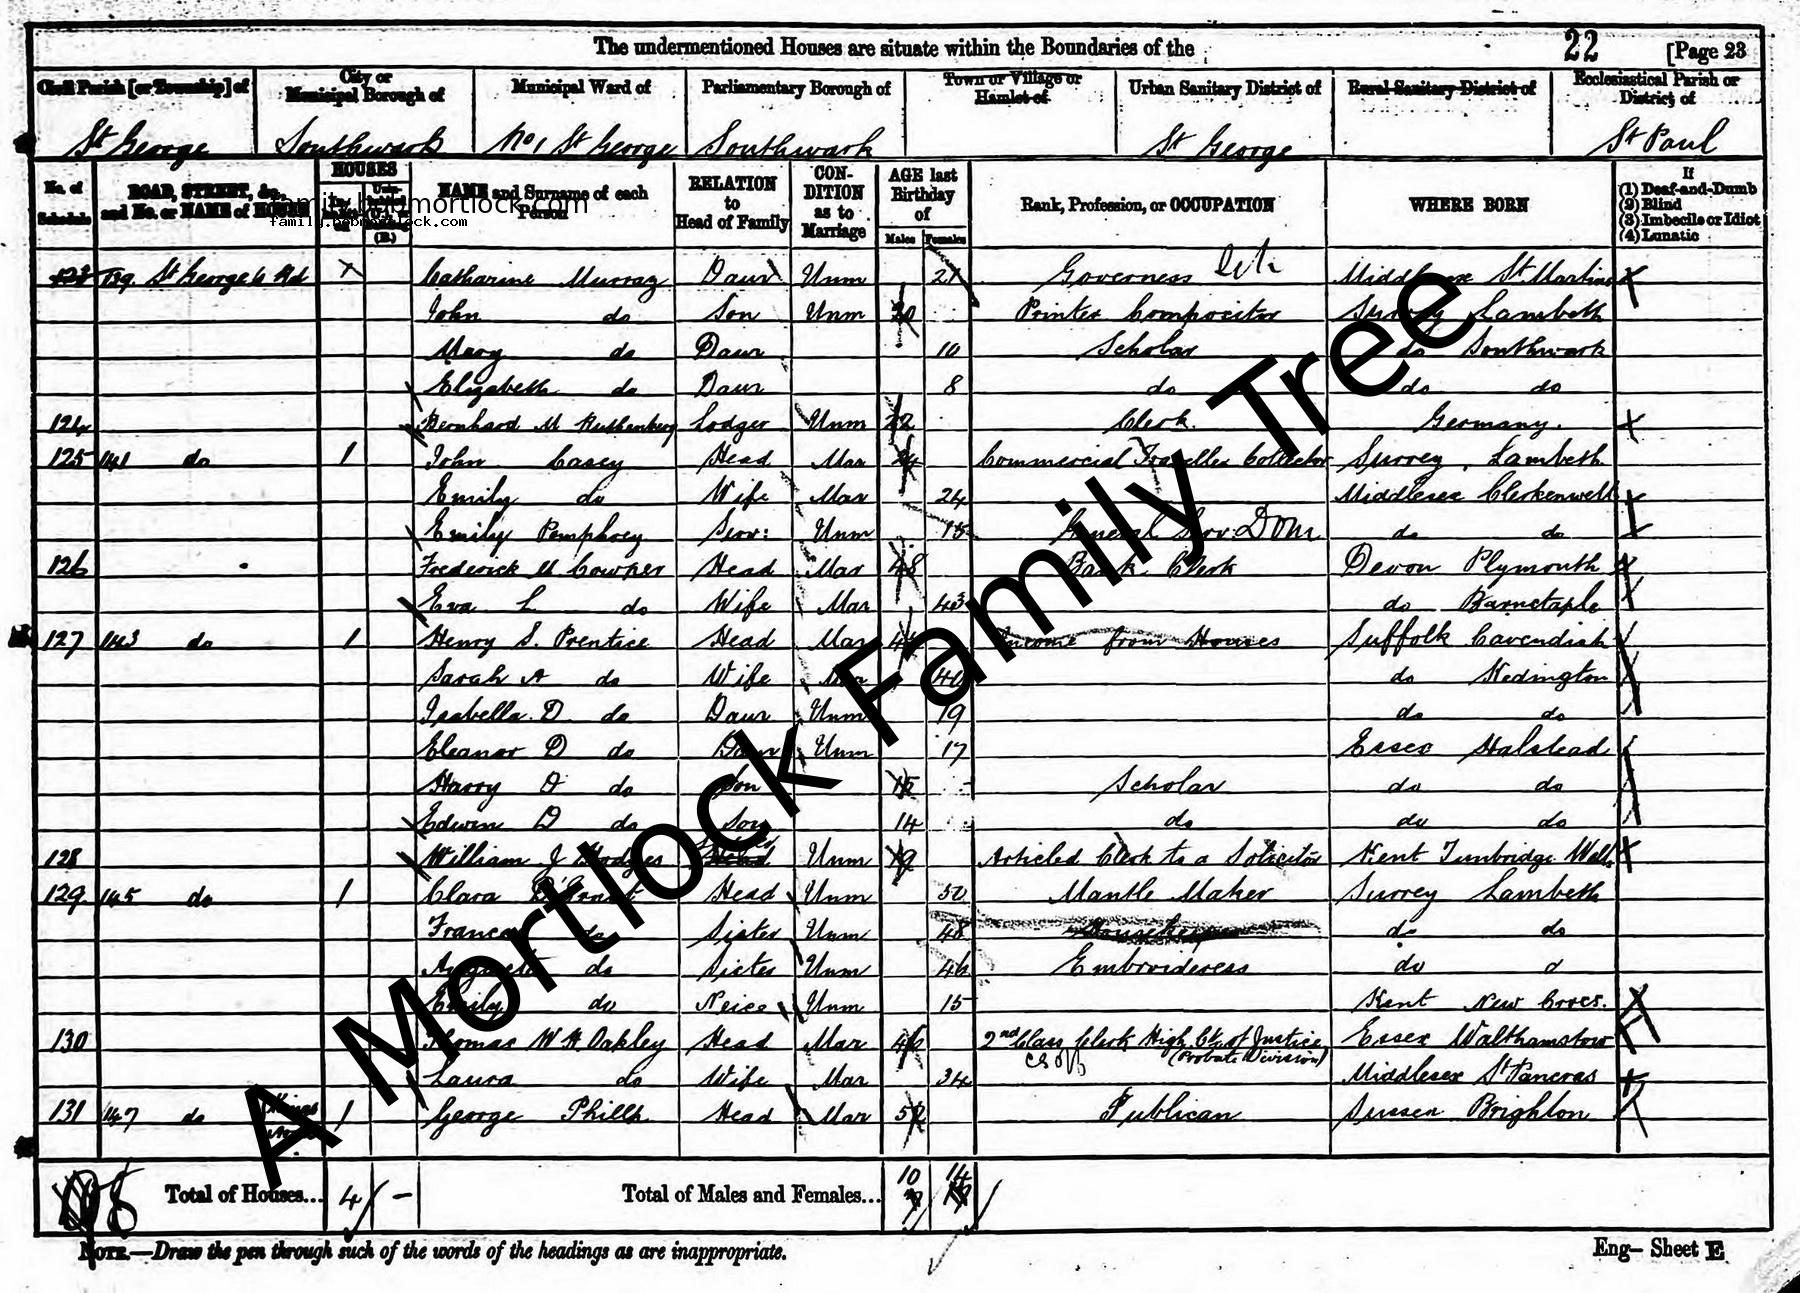 The undermentioned Houses are situate within the Boundaries of the 22 [Page 23
Civil Parish [or Township] of City or Municipal Borough of Municipal Ward of Parliamentary Borough of Town or Village or Hamlet of Urban Sanitary District of Rural Sanitary District of Ecclesiastical Parish or District of
St George Southwark No 1 St George Southwark St George St Paul
No. of Schedule ROAD, STREET, &c., and No. or NAME of HOUSE HOUSES (B.) NAME and Surname of each Person RELATION to Head of Family CONDITION as to Marriage AGE last Birthday of Males Females Rank, Profession, or OCCUPATION WHERE BORN If (1) Deaf-and-Dumb (2) Blind (3) Imbecile or Idiot (4) Lunatic
family.bobmortlock.com
family.bobmortlock.com
123 139 St George's Rd Catharine Murray Daur Unm 21 Governess Middlesex St Martins
John do Son Unm 20 Printer Compositor Surrey Lambeth
Mary do Daur 10 Scholar do Southwark
Elizabeth do Daur 8 do do do
124 Bernhard M Ruthenberg Lodger Unm 22 Clerk. Germany.
125 141 do 1 John Casey Head Mar 24 Commercial Traveller Collector Surrey, Lambeth.
Emily do Wife Mar 24 Middlesex Clerkenwell
Emily Pemphrey Serv: Unm 15 General Serv: Dom do do
126 Frederick M Cowper Head Mar 48 Bank Clerk Devon Plymouth
Eva L do Wife Mar 43 do Barnstaple
127 143 do 1 Henry S. Prentice Head Mar Income from Houses Suffolk Cavendish
Sarah A do Wife Mar 40 do Kedington
Isabella D. do Daur Unm 19 do do
Eleanor D do Daur Unm 17 Essex Halstead
Harry D do Son 15 Scholar do do
Edwin D do Son 14 do do do
128 William J Hodges Head Unm 19 Articled Clerk to a Solicitor Kent Tunbridge Wells
129 145 do 1 Clara D'Ernst Head Unm 50 Mantle Maker Surrey Lambeth
Frances do Sister Unm 48 Housekeeper do do
Augusta do Sister Unm 46 Embroideress do d
Emily do Neice Unm 15 Kent New Cross.
130 Thomas W H Oakley Head Mar 46 2nd Class Clerk High Ct. of Justice (Probate Division) Essex Walthamstow
Laura do Wife Mar 34 Middlesex St Pancras
131 147 do 1 George Phillp Head Mar 52 Publican Sussex Brighton
Total of Houses... 4 – Total of Males and Females... 10 14
NOTE.—Draw the pen through such of the words of the headings as are inappropriate. Eng– Sheet E
A Mortlock Family Tree